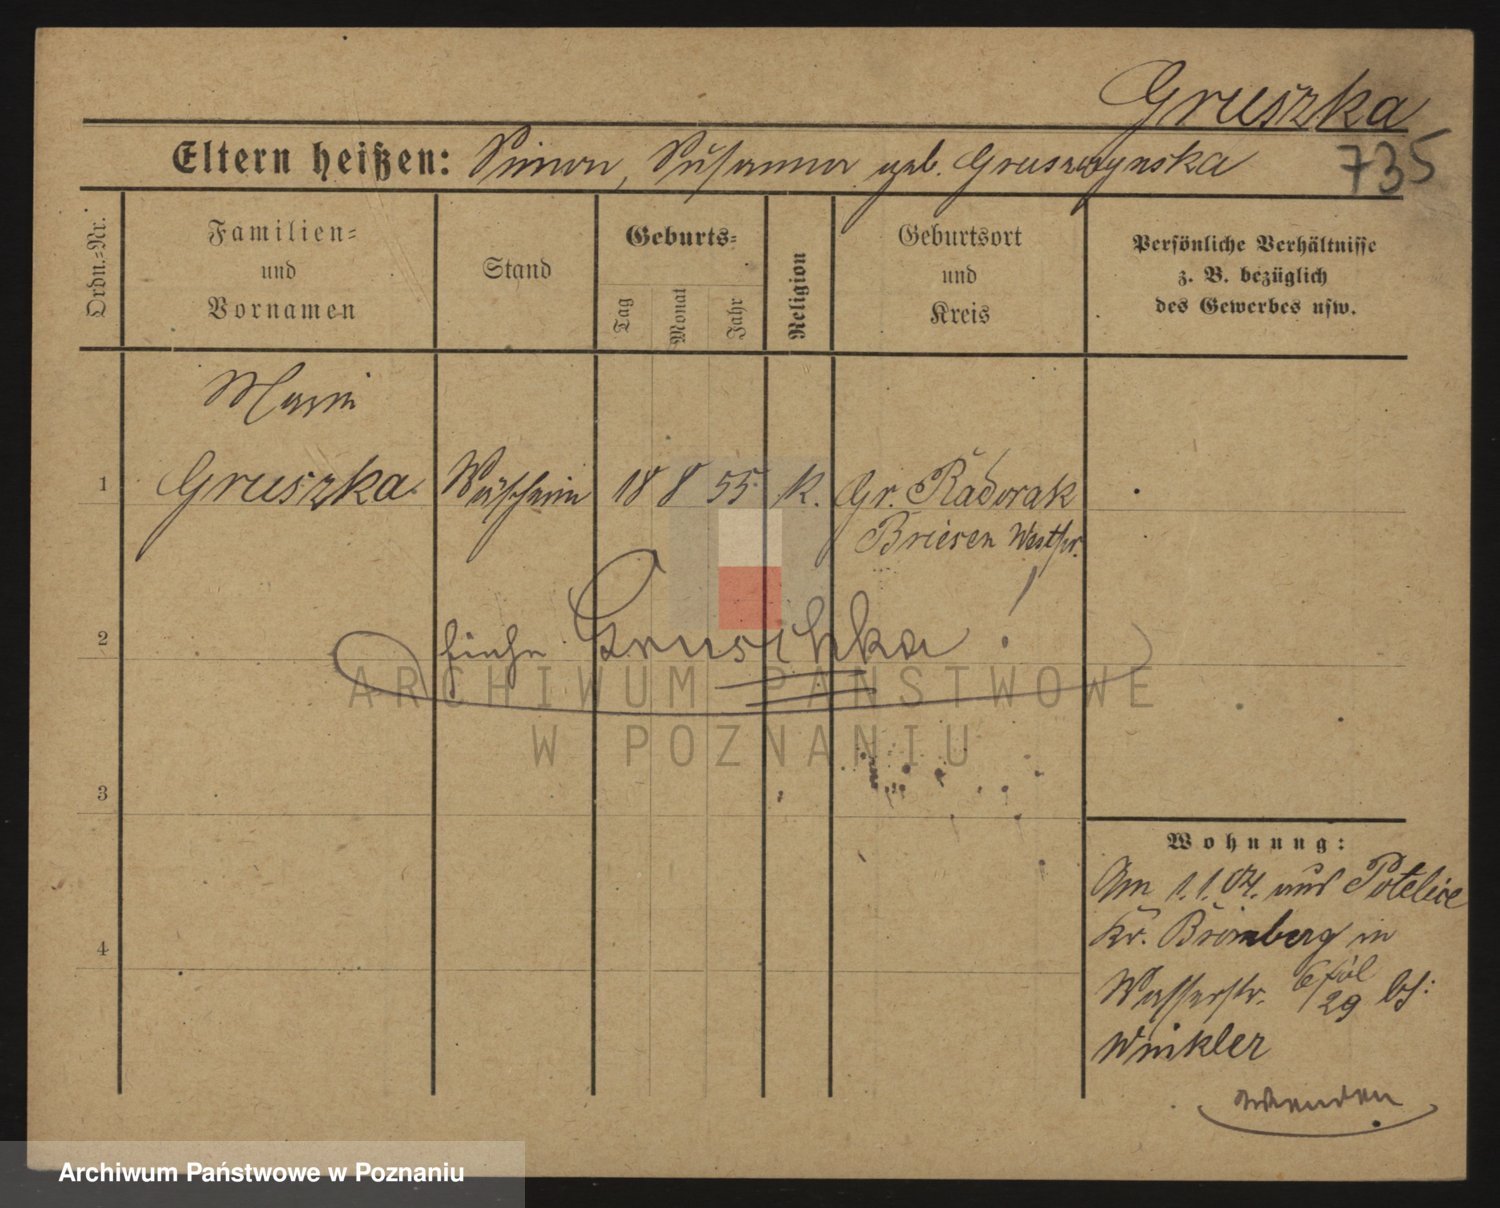 Gruszka
735
Eltern heißen: Simon, Susanna geb. Gruszczynska
Ordn.=Nr.
Familien=
und
Vornamen
Stand
Geburts=
Tag
Monat
Jahr
Religion
Geburtsort
und
Kreis
Persönliche Verhältnisse
z. B. bezüglich
des Gewerbes usw.
Marie
1 Gruszka Wäscherin 18 8 55 K. Gr. Radowisk
Briesen Westpr.
2 siehe Gruschka !
3
4
Wohnung:
Am 1.1.04. aus
Kr. Bromberg in
Wasserstr. 29 bs:
Winkler
wenden
ARCHIWUM PAŃSTWOWE
W POZNANIU
Archiwum Państwowe w Poznaniu